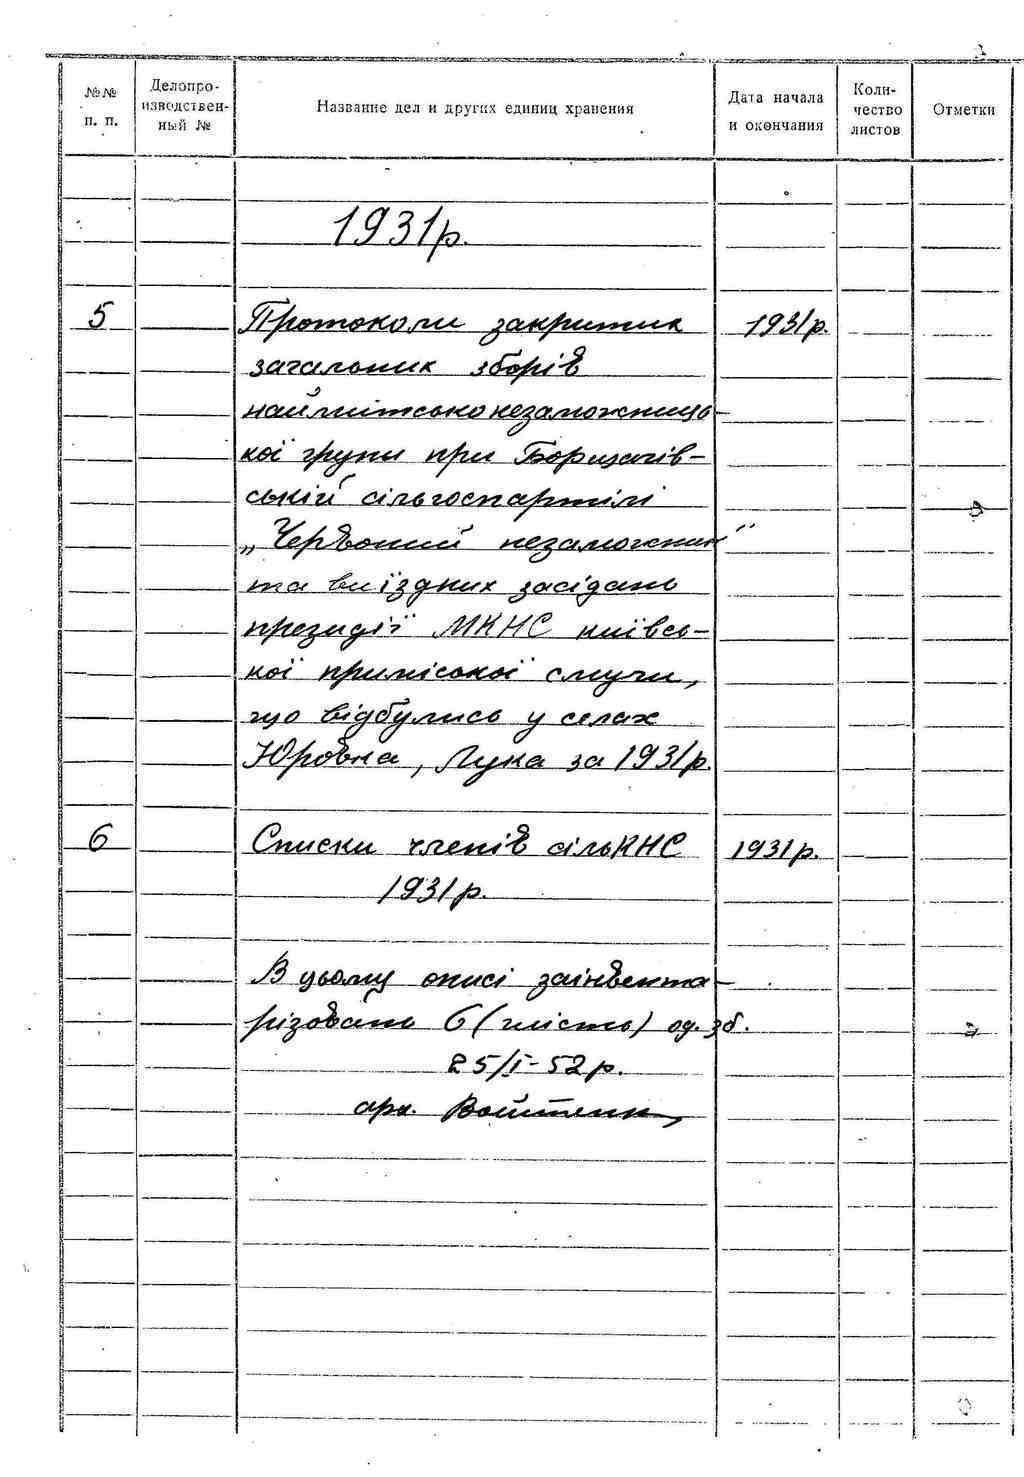 №№ п. п.
Делопроизводственный №
Название дел и других единиц хранения
Дата начала и окончания
Количество листов
Отметки
1931р.
5 Протоколи закритих 1931р.
загальних зборів
наймитсько незаможниць-
кої групи при Борщагів-
ській сільгоспартілі
„Червоний незаможник"
та виїздних засідань
президії МКНС київсь-
кої приміської смуги,
що відбулись у селах
Юровка, Лука за 1931р.
6 Списки членів сільКНС 1931р.
1931р.
В цьому описі заінвента-
різовано 6 (шість) од. зб.
25/I-52р.
арх. Войтенк